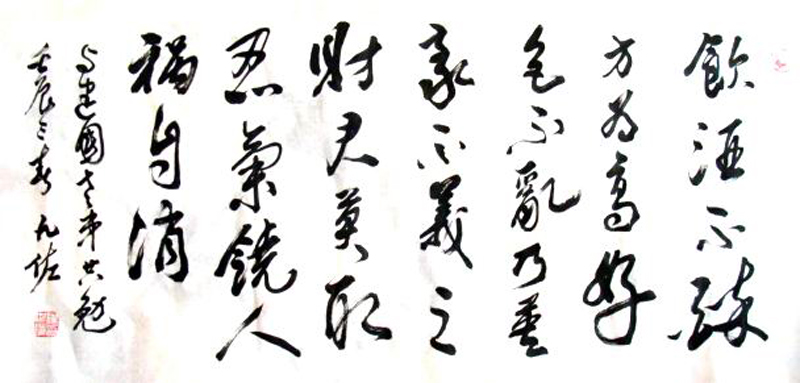 飲酒不醉
方为高好
色不亂乃英
豪不義之
財君莫取
忍氣饒人
禍自消
与建國老弟共勉
壬辰三春